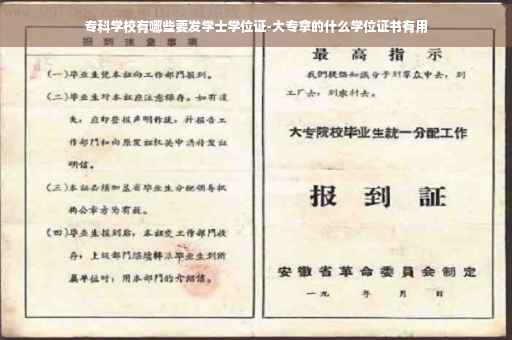 专科学校有哪些要发学士学位证-大专拿的什么学位证书有用
报到注意事项
(一)毕业生凭本证向工作部门报到。
(二)毕业生对本证应注意保存。如有遗
失，应即登报声明作废，并报告工
作部门和向原发证机关申请补发证
明信。
(三)本证必须加盖省毕业生分配领导机
构公章方为有效。
(四)毕业生报到后，本证交工作部门收
存；上级部门继续转派毕业生到所
属单位时，用本部门的介绍信。
最高指示
我们提倡知识分子到群众中去，到
工厂去，到农村去。
大专院校毕业生统一分配工作
报到证
安徽省革命委员会制定
一九 年 月 日